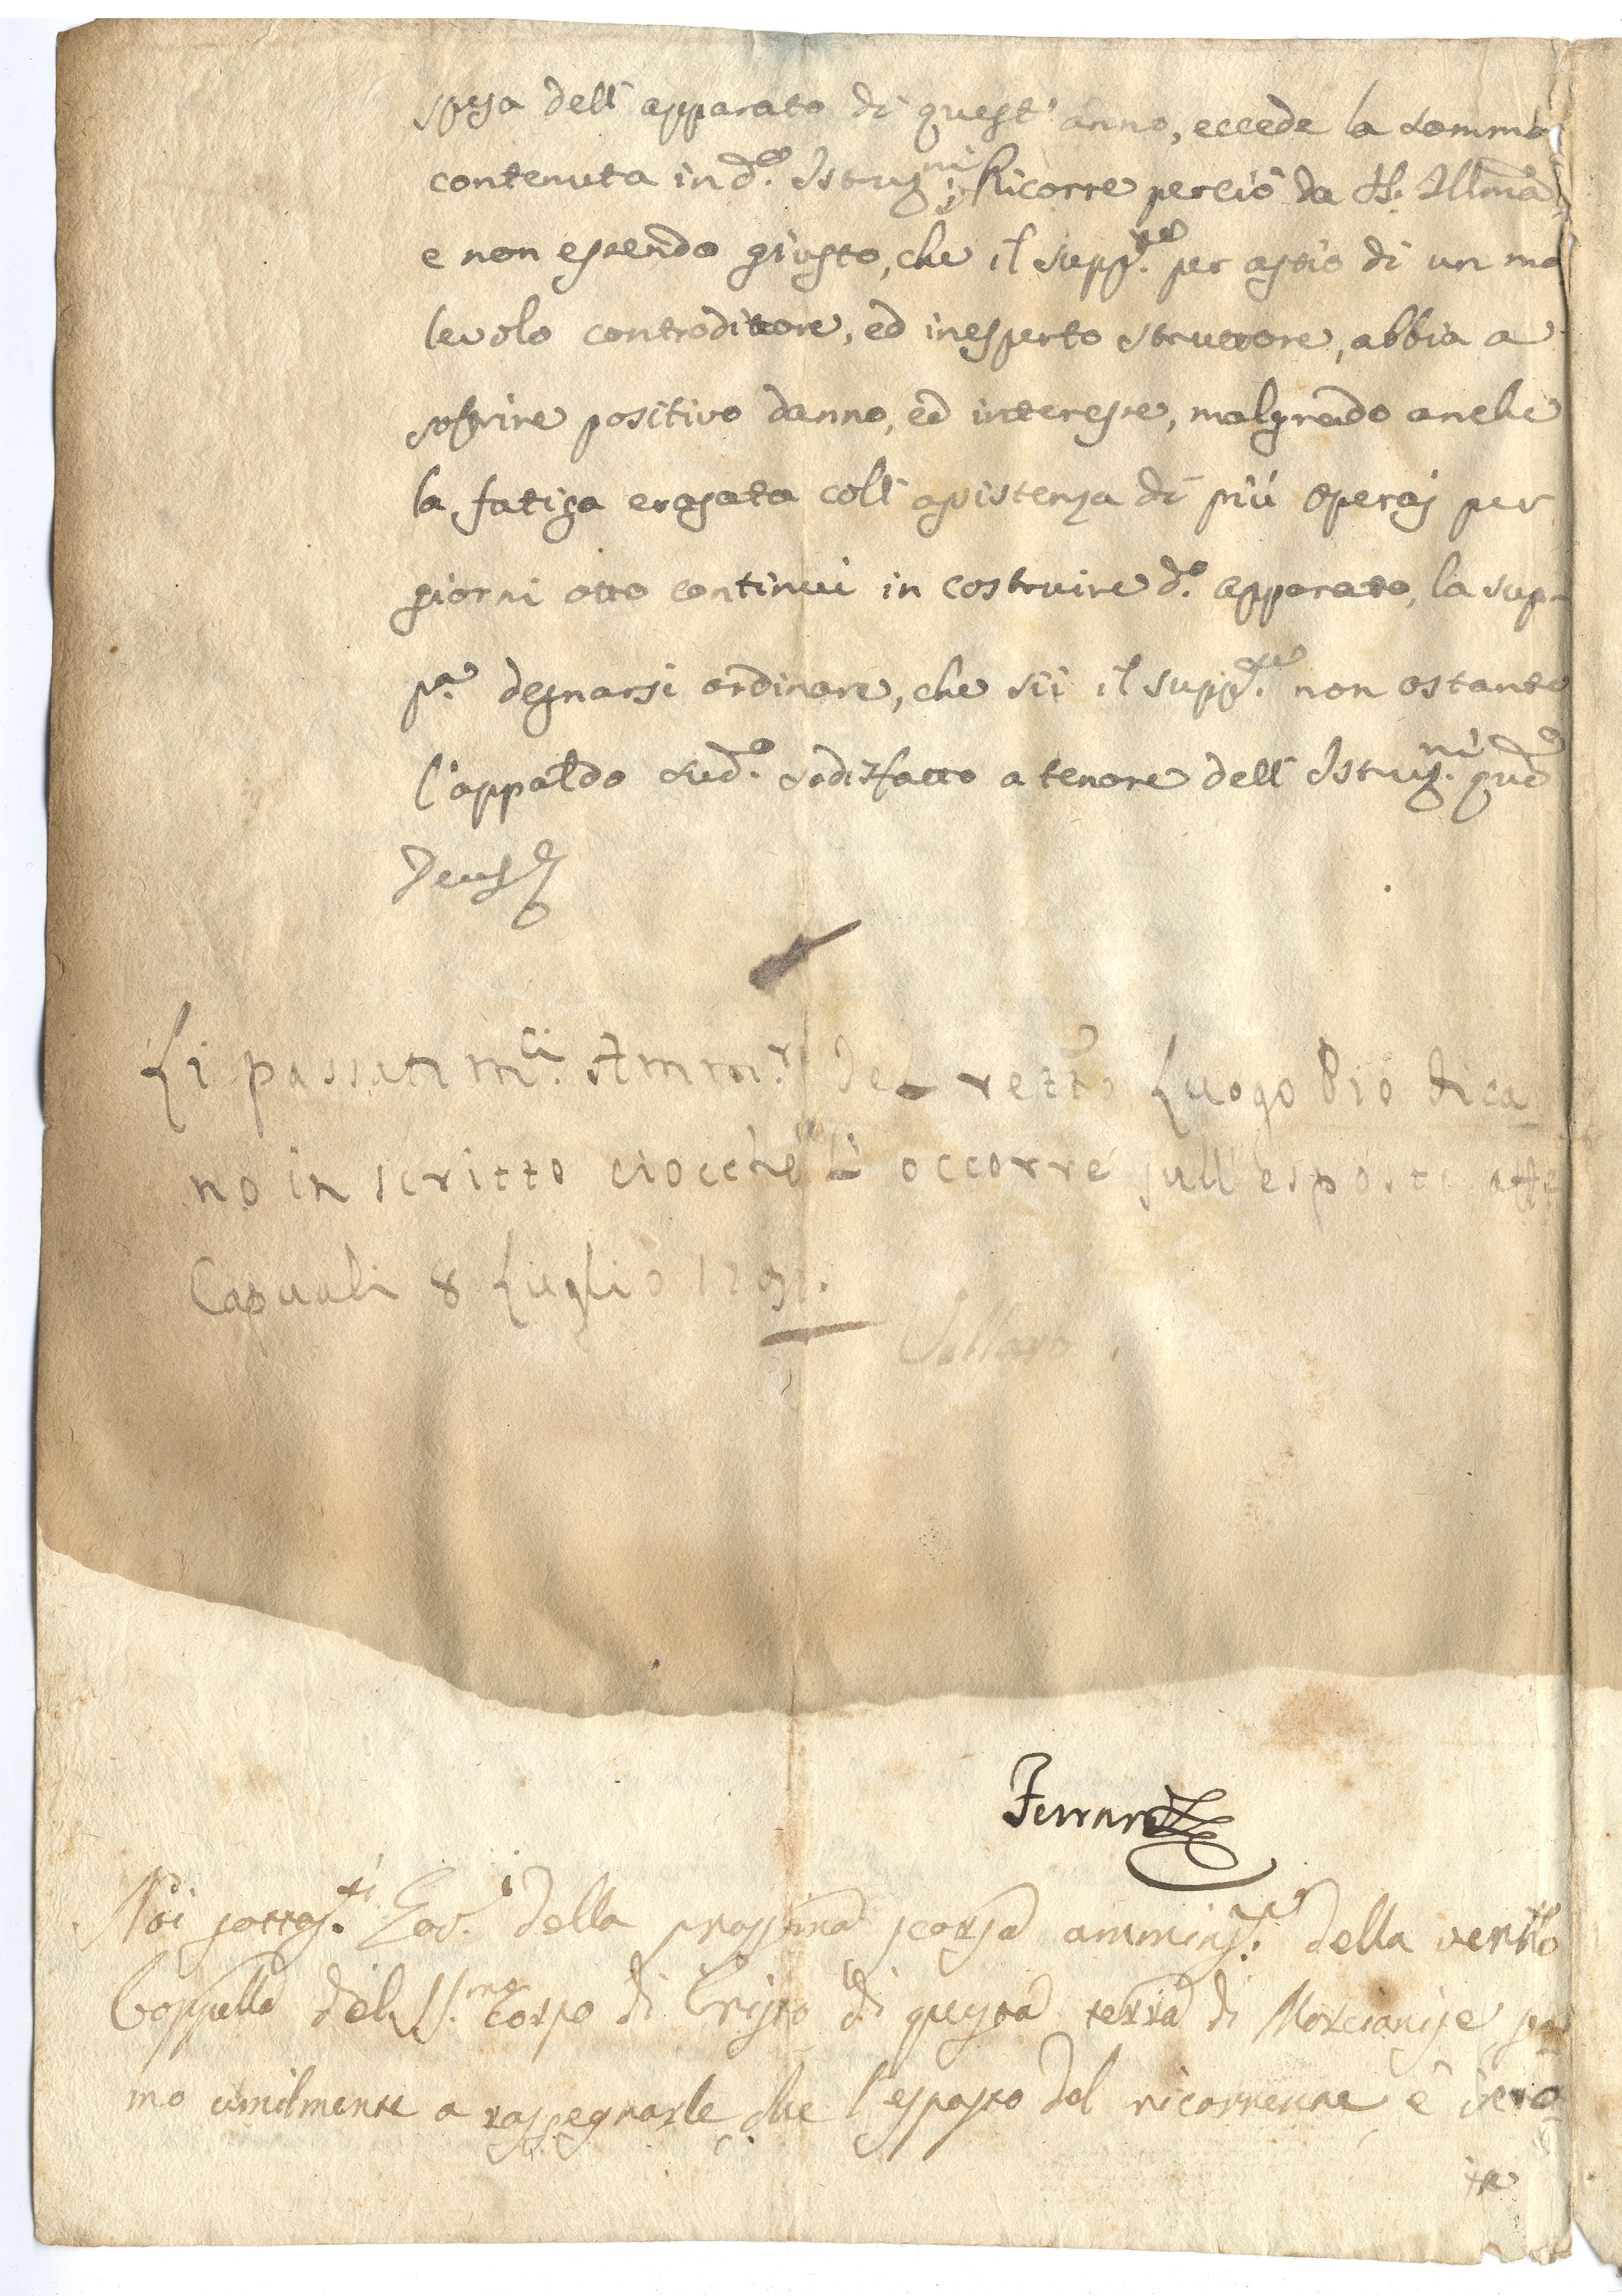 spesa dell'apparato di quest'anno, eccede la somma
contenuta in d.e Istruz.ni; Ricorre perciò da VS. Illma,
e non essendo giusto, che il supp.te per astio di un ma
levolo controditore, ed inesperto struttore, abbia a
soffrire positivo danno, ed interesse, malgrado anche
la fatiga erogata coll'assistenza di più operaj per
giorni otto continui in costruire d.o apparato, la sup-
p.a degnarsi ordinare, che sii il supp.te non ostante
l'appaldo sud.o sodisfatto a tenore dell'Istruz.ni q ued
Deus
Li passati m.ci Amm.ri del retto Luogo Pio dica
no in scritto ciocchè li occorre sull'esposto
Capuali 8 Luglio 1791.
Ferraro
Noi sottos.ti Gov.i della prossima scorsa amminis.ne della ven.le
Cappella del SS.mo Corpo di Cristo di questa terra di Marcianise
mo umilmente a rassegnarle, che l'esposto dal ricorrente è vero